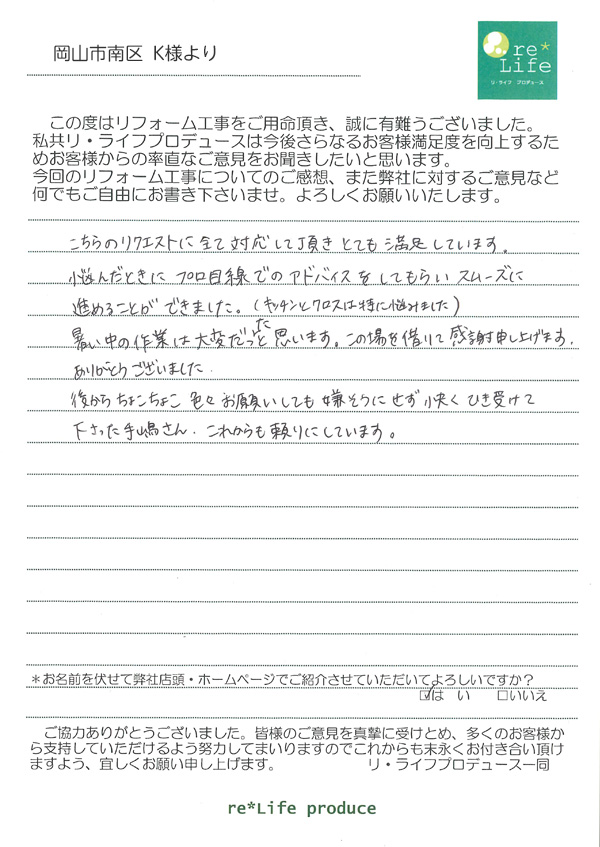 岡山市南区 K様より
re*
Life
リ・ライフ プロデュース
この度はリフォーム工事をご用命頂き、誠に有難うございました。
私共リ・ライフプロデュースは今後さらなるお客様満足度を向上するた
めお客様からの率直なご意見をお聞きしたいと思います。
今回のリフォーム工事についてのご感想、また弊社に対するご意見など
何でもご自由にお書き下さいませ。よろしくお願いいたします。
こちらのリクエストに全て対応して頂きとても満足しています。
悩んだときにプロ目線でのアドバイスをしてもらいスムーズに
進めることができました。(キッチンとクロスは特に悩みました)
暑い中の作業は大変だったと思います。この場を借りて感謝申し上げます.
ありがとうございました.
後からちょこちょこ色々お願いしても嫌そうにせず快くひき受けて
下さった手嶋さん.これからも頼りにしています。
*お名前を伏せて弊社店頭・ホームページでご紹介させていただいてよろしいですか?
☑はい □いいえ
ご協力ありがとうございました。皆様のご意見を真摯に受けとめ、多くのお客様か
ら支持していただけるよう努力してまいりますのでこれからも末永くお付き合い頂け
ますよう、宜しくお願い申し上げます。 リ・ライフプロデュース一同
re*Life produce